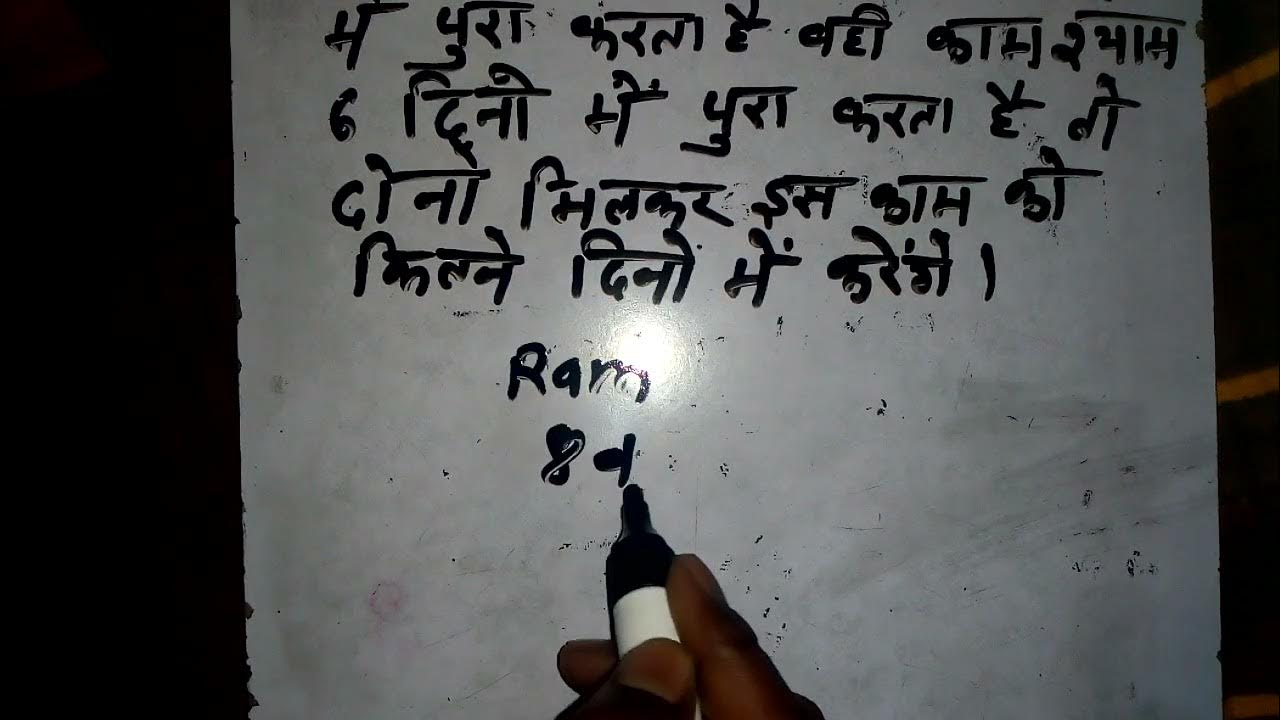 में पुरा करता है वही काम श्याम
6 दिनो में पुरा करता है तो
दोनो मिलकर इस काम को
कितने दिनों में करेंगे।
Ram
8d